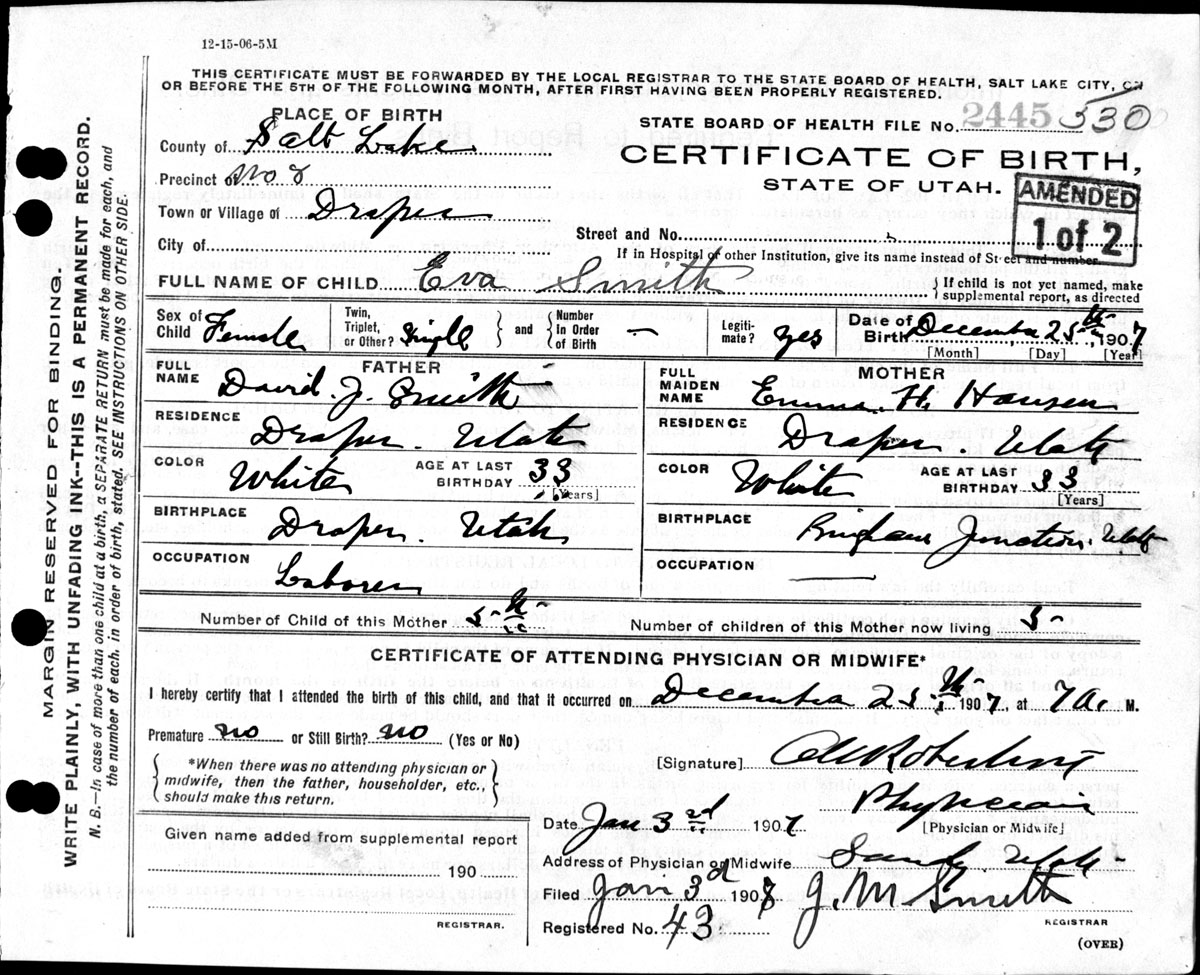 12-15-06-5M
THIS CERTIFICATE MUST BE FORWARDED BY THE LOCAL REGISTRAR TO THE STATE BOARD OF HEALTH, SALT LAKE CITY, ON
OR BEFORE THE 5TH OF THE FOLLOWING MONTH, AFTER FIRST HAVING BEEN PROPERLY REGISTERED.
MARGIN RESERVED FOR BINDING.
WRITE PLAINLY, WITH UNFADING INK--THIS IS A PERMANENT RECORD.
N. B.—In case of more than one child at a birth, a SEPARATE RETURN must be made for each, and
the number of each, in order of birth, stated. SEE INSTRUCTIONS ON OTHER SIDE.
PLACE OF BIRTH
County of Salt Lake
Precinct of No. 2
Town or Village of Draper
City of
STATE BOARD OF HEALTH FILE No. 2445 530
CERTIFICATE OF BIRTH,
STATE OF UTAH.
AMENDED
1 of 2
Street and No.
If in Hospital or other Institution, give its name instead of Street and number.
FULL NAME OF CHILD Eva Smith
If child is not yet named, make
supplemental report, as directed
Sex of Child Female
Twin, Triplet, or Other? Single and Number In Order of Birth —
Legitimate? yes
Date of Birth December 25th 1907
[Month] [Day] [Year]
FATHER
FULL NAME David. J. Smith
RESIDENCE
Draper. Utah
COLOR White AGE AT LAST BIRTHDAY 33
[Years]
BIRTHPLACE
Draper. Utah
OCCUPATION
Laborer
MOTHER
FULL MAIDEN NAME Emma. H. Hansen
RESIDENCE
Draper. Utah
COLOR White AGE AT LAST BIRTHDAY 33
[Years]
BIRTHPLACE
Bingham Junction. Utah
OCCUPATION —
Number of Child of this Mother 5th
Number of children of this Mother now living 5
CERTIFICATE OF ATTENDING PHYSICIAN OR MIDWIFE*
I hereby certify that I attended the birth of this child, and that it occurred on December 25th 1907 at 7 A. M.
Premature no or Still Birth? no (Yes or No)
*When there was no attending physician or
midwife, then the father, householder, etc.,
should make this return.
[Signature]
Physician
[Physician or Midwife]
Date Jan 3rd 1907
Address of Physician or Midwife Sandy Utah
Given name added from supplemental report
190
REGISTRAR.
Filed Jan 3d 1908 J. M. Smith
REGISTRAR
Registered No. 43
(OVER)